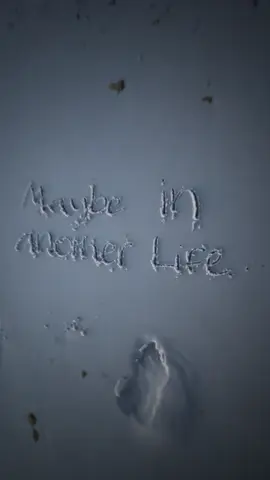 Maybe in
another Life.